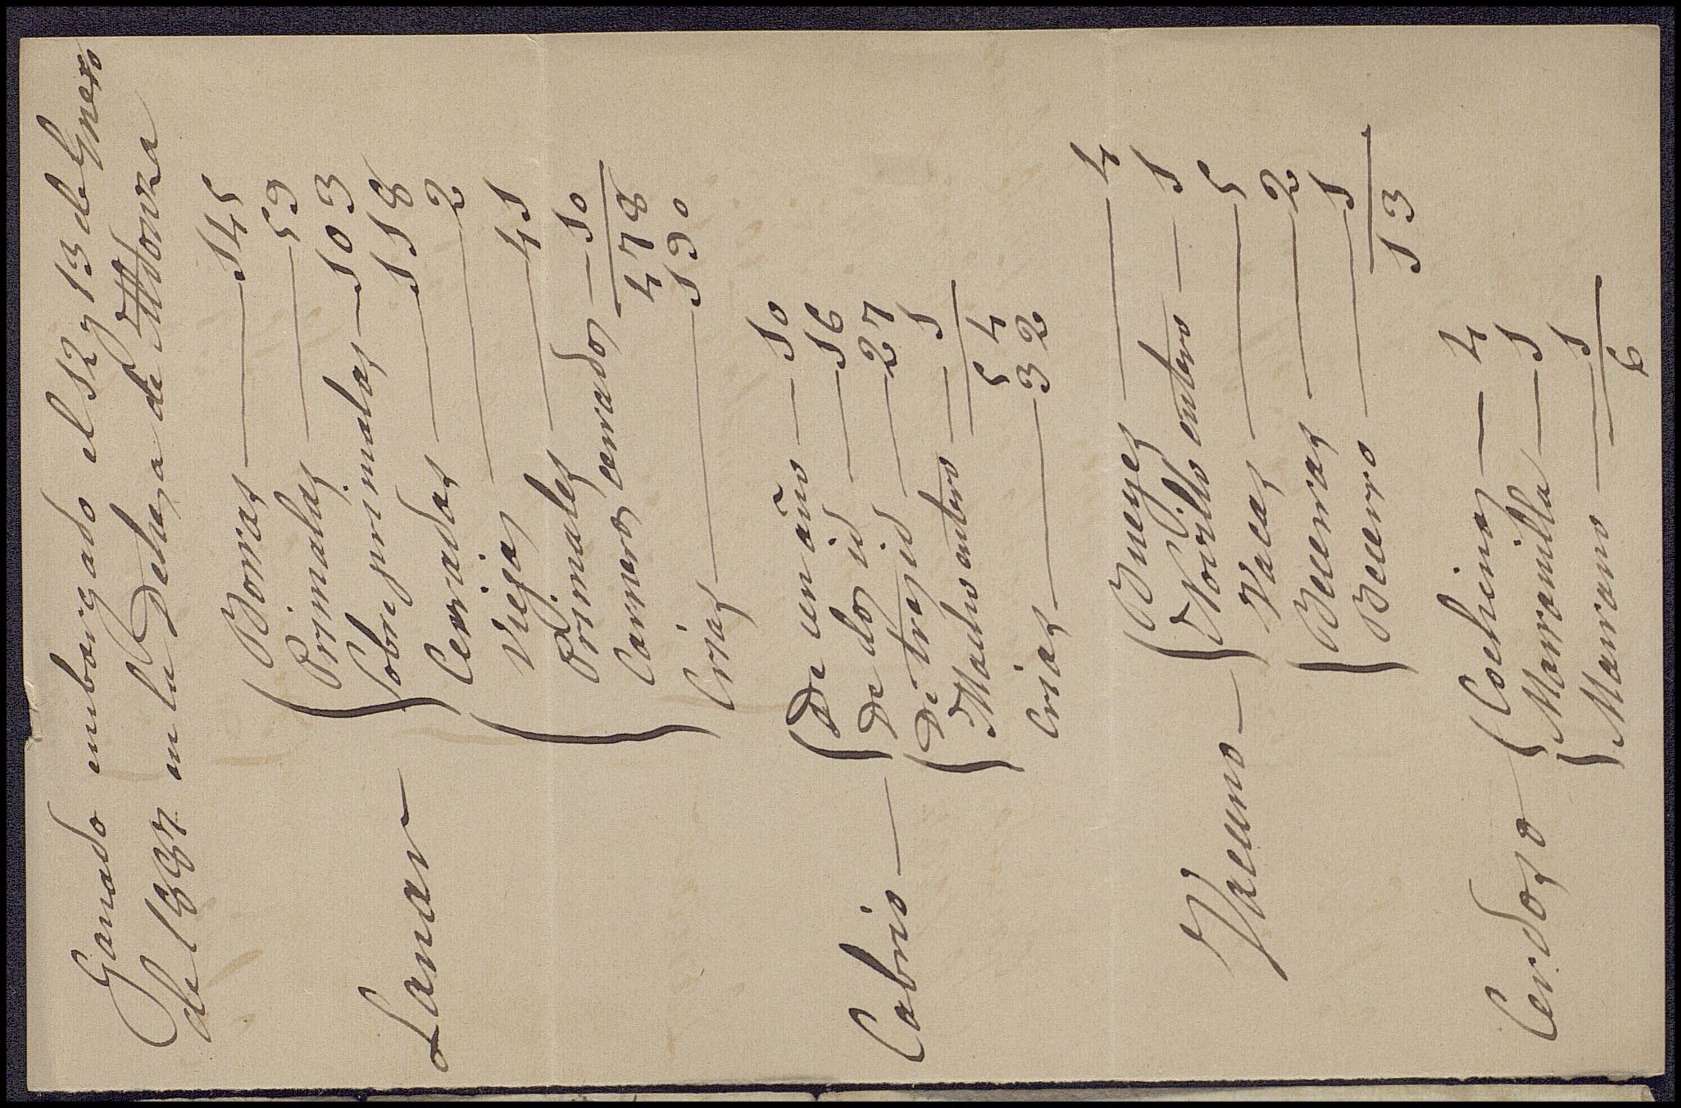 Ganado embargado el 12 y 13 de Enero
de 1887 en la Dehesa de Aldonza
Borras 145
Primalas 59
Sobreprimalas 103
Lanar Cerradas 118
Viejas 2
Primales 41
Carneros cerrados 10
478
Crias 190
De un año 10
Cabrio De dos id 16
De tres id 27
Macho entero 1
54
Crias 32
Bueyes 4
Novillo entero 1
Vacuno Vacas 5
Becerras 2
Becerro 1
13
Cochinos 4
Cerdoso Marranilla 1
Marrano 1
6